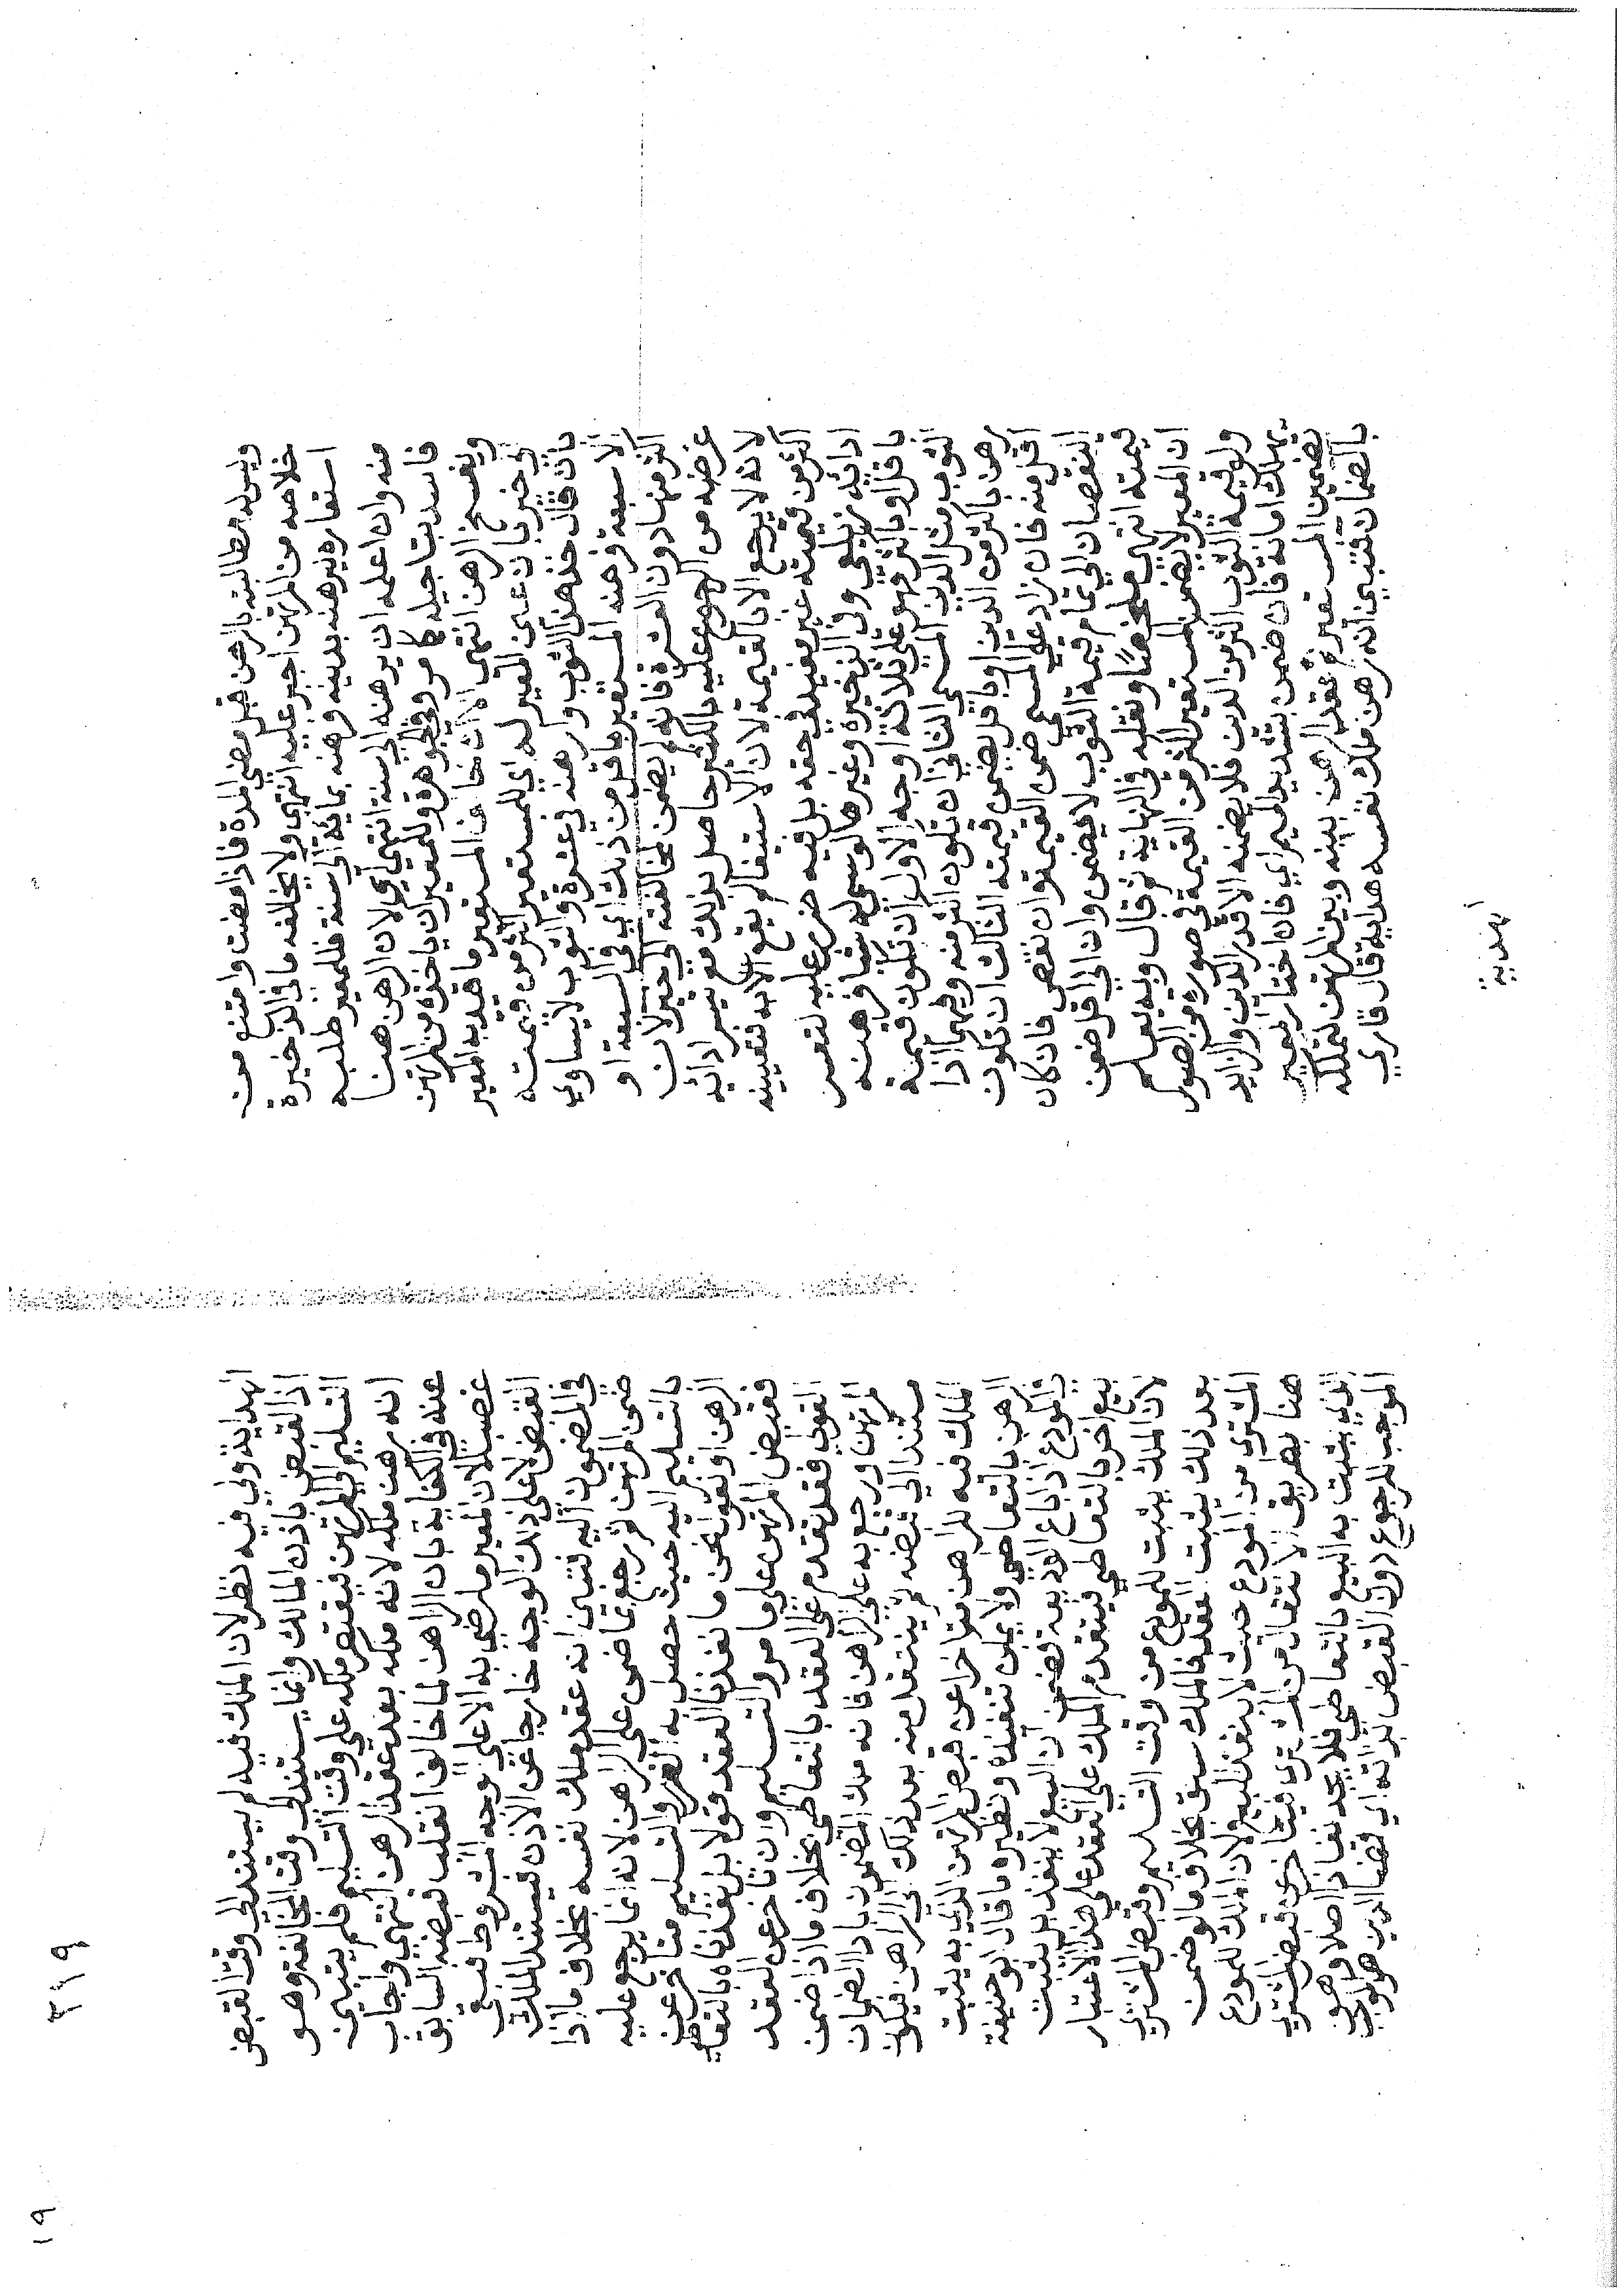 وليس له مطالبته بالرهن قبل مضي المدة فاذا مضت وامتنع من
خلاصه من المرتهن اجبر عليه انتهى ولا يخالفه ما في الذخيرة
استعاره ليرهنه بدينه فرهنه بمائة الى سنة فللمعير طلبه
منه وان اعلمه ان يرهنه الى سنة انتهى اي لان الرهن هنا
فاسد بتاجيله كما مر وفي الجوهرة وللمعير ان ياخذه من المرتهن
ويفسخ الرهن انتهى الا ان خالف المستعير ما قيد به المعير
الى خير بان عين المعير له اي للمستعير اكثر من قيمته
بان قال خذ هذا الثوب وارهنه في عشرة والثوب لا يساوي
الا سبعة فرهنه المستعير باقل من ذلك اي في السبعة او
اكثر منها دون العشرة فانه لا يضمن لمخالفته الى خير لان
غرضه من الرجوع عليه بالكثير حاصل بذلك مع تيسر ادائه
لانه لا يرجع الا بالقيمة لان الاستيفا لم يقع الا به فتعيينه
اكثر من قيمته غير مفيد في حقه بل فيه ضرر عليه لتعسر
ادائه زيلعي وفي الذخيرة وغيرها لو سمى له شيئا فرهنه
باقل او باكثر فهو على ثلاثة اوجه الاول ان تكون قيمة
الثوب مثل الدين المسمى الثاني ان تكون اكثر منه وفيهما اذا
رهن باكثر من الدين او باقل يضمن قيمته الثالث ان تكون
اقل منه فان زاد على المسمى ضمن القيمة وان نقص فان كان
النقصان الى تمام قيمة الثوب لا يضمن وان الى اقل ضمن
قيمته انتهى ملخصا ونقله في النهاية ثم قال وبه يعلم
ان المعير لا يضمن المستعير اكثر من القيمة في صورة من الصور
ولو قيمة الثوب اكثر من الدين فلا يضمنه الا قدر الدين والزايد
يهلك امانة فان ضمن بتشديد الميم اي فان اختار المعير
تضمين المستعير تم عقد الرهن بينه وبين المرتهن لتملكه
بالضمان فتبين انه رهن ملك نفسه هداية قال قاري
الهداية
الهداية ولي فيه نظر لان الملك فيه لم يستند الى وقت القبض
اذ القبض باذن المالك وانما يستند الى وقت المخالفة وهو
التسليم الى المرتهن فيقتصر ملكه على وقت التسليم فلم يتبين
انه رهن ملكه لانه ملكه بعد عقد الرهن انتهى واجاب
عنه في الكفاية بان الراهن لما خالف انقلب قبضه السابق
غصبا لان المعير ما رضي به الا على الوجه المشروط فبقي
القبض لا على ذلك الوجه خارجا عن الاذن فيستند الملك
في المضمون اليه فتبين انه عقد ملك نفسه بخلاف ما اذا
ضمن المرتهن ثم رجع بما ضمن على الراهن لانه انما يرجع عليه
بالتسليم اليه حيث حصل به الغرر والتسليم متاخر عن
الرهن او نقول نحن ما نفذنا العقد قولا بل نفذناه بالتعاطي
فقبض المرتهن على ما مر والتسليم وان تاخر عن العقد
القولي فقد تقدم على العقد بالتعاطي بخلاف ما اذا ضمن
المرتهن ورجع به على الراهن فانه ملك المضمون بادا الضمان
مستندا الى قبضه ثم ينتقل منه بعد ذلك الى الراهن فيكون
الملك فيه للراهن متاخرا عن قبض المرتهن الذي به يثبت
الرهن بالتعاطي ولا يمكن تنفيذه ونظيره ما قال ابو حنيفة
في المودع اذا باع الوديعة فضمن ان البيع لا ينفذ بل يثبت
بيع اخر بالتعاطي فيتقدم الملك على العقد على هذا الاعتبار
لان الملك يثبت للمودع من وقت التسليم وقبض المشتري
بعد ذلك يثبت العقد فالملك سبق بخلاف ما لو ضمن
المشتري من المودع حيث لا ينفذ البيع لان الملك للمودع
هنا بطريق الانتقال من المشتري فيتاخر عن قبض المشتري
الذي يثبت به البيع بالتعاطي فلا يجد نفاذا اصلا وهو
الموجب للرجوع دون القبض بذاته اي قضا الدين هو الموجب
٣١٩
١٩